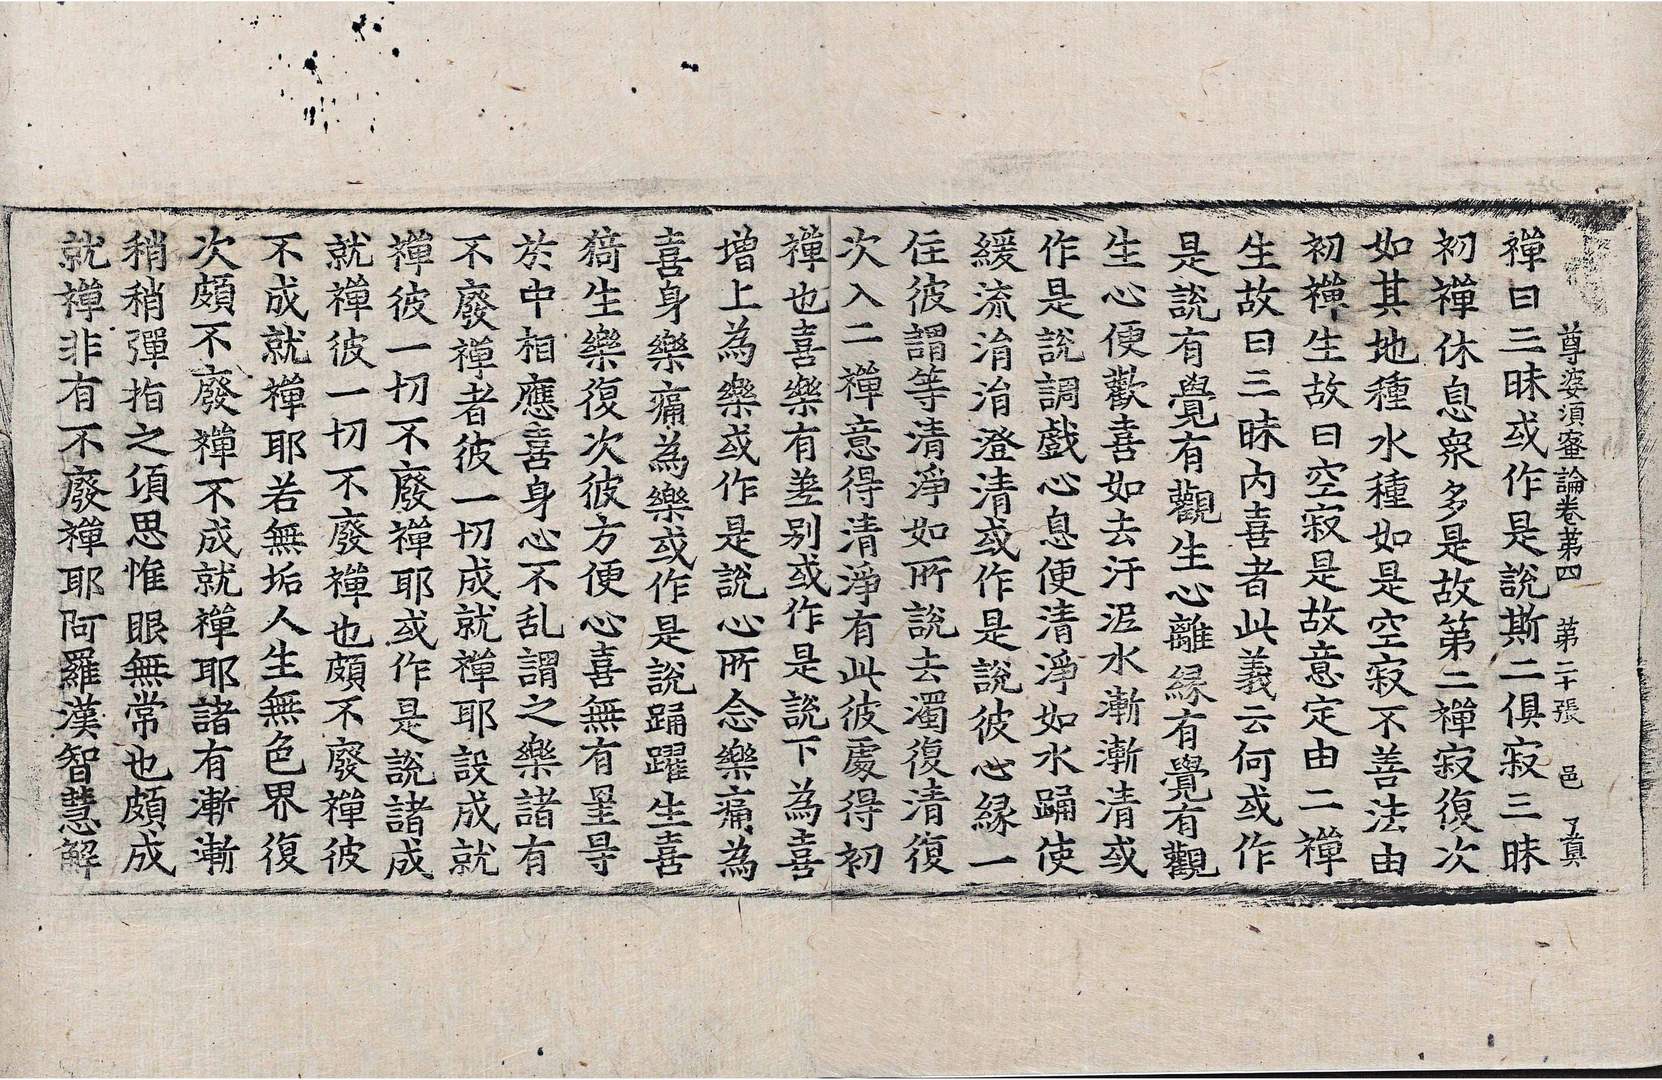 尊婆須蜜論卷第四 第二十張 邑 了真
禪曰三昧或作是說斯二俱寂三昧
初禪休息衆多是故第二禪寂復次
如其地種水種如是空寂不善法由
初禪生故曰空寂是故意定由二禪
生故曰三昧內喜者此義云何或作
是說有覺有觀生心離縁有覺有觀
生心便歡喜如去汙泥水漸漸清或
作是說調戲心息便清淨如水踊使
緩流湝湝澄清或作是說彼心縁一
住彼謂等清淨如所說去濁復清復
次入二禪意得清淨有此彼處得初
禪也喜樂有差別或作是説下為喜
增上為樂或作是說心所念樂痛為
喜身樂痛為樂或作是說踊躍生喜
猗生樂復次彼方便心喜無有罣㝵
於中相應喜身心不乱謂之樂諸有
不廢禪者彼一切成就禪耶設成就
禪彼一切不廢禪耶或作是說諸成
就禪彼一切不廢禪也頗不廢禪彼
不成就禪耶若無垢人生無色界復
次頗不廢禪不成就禪耶諸有漸漸
稍稍彈指之湏思惟眼無常也頗成
就禪非有不廢禪耶阿羅漢智慧解